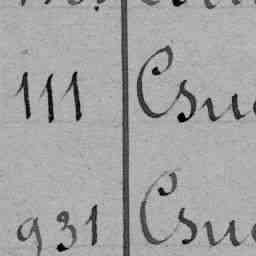 111 Csu
931 Csu